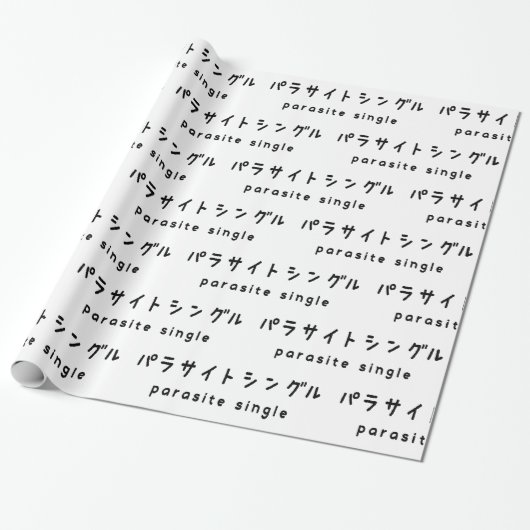 トシングル パラサイトシングル パラサイ
te single parasite single parasite
パラサイトシングル パラサイトシングル
parasite single parasite single
サイトシングル パラサイトシングル パラサイ
site single parasite single parasite
パラサイトシングル パラサイトシングル
parasite single parasite single
イトシングル パラサイトシングル パラサイ
single parasite single parasite
パラサイトシングル パラサイトシングル
parasite single parasite single
トシングル パラサイトシングル パラサイ
single parasite single parasit